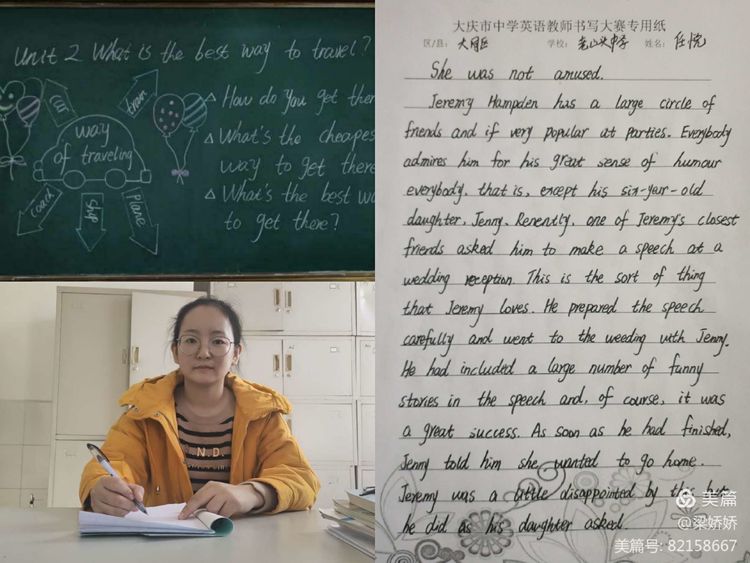 Unit 2 What is the best way to travel?
car
train
way
of traveling
coach
ship
plane
How do you get ther
What's the cheapes
way to get there
What's the best wa
to get there?
大庆市中学英语教师书写大赛专用纸
区/县: 大同区 学校: 老山头中学 姓名: 任悦
She was not amused.
Jeremy Hampden has a large circle of
friends and if very popular at parties. Everybody
admires him for his great sense of humour
everybody, that is, except his six-year-old
daughter, Jenny. Renently, one of Jeremy's closest
friends asked him to make a speech at a
wedding reception. This is the sort of thing
that Jeremy loves. He prepared the speech
carefully and went to the weeding with Jenny.
He had included a large number of funny
stories in the speech and, of course, it was
a great success. As soon as he had finished,
Jenny told him she wanted to go home.
Jeremy was a little disappointed by this but
he did as his daughter asked.
N.D.
美篇
@梁娇娇
美篇号: 82158667